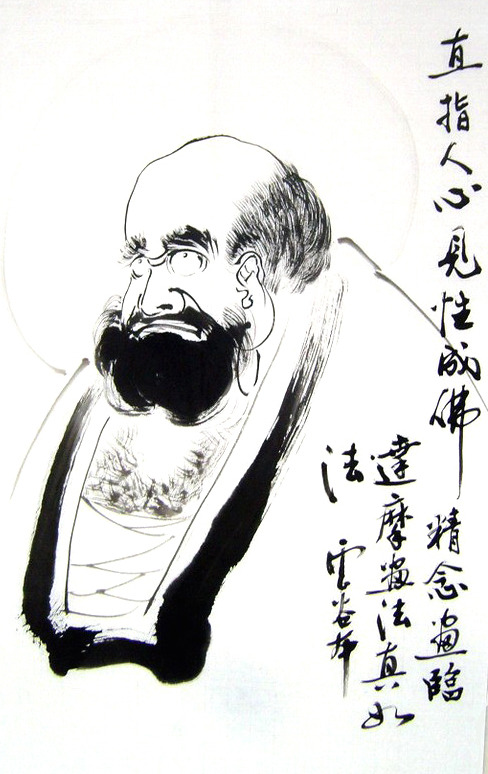 直指人心見性成佛 精念畫臨
達摩畫法真如
法 雲谷